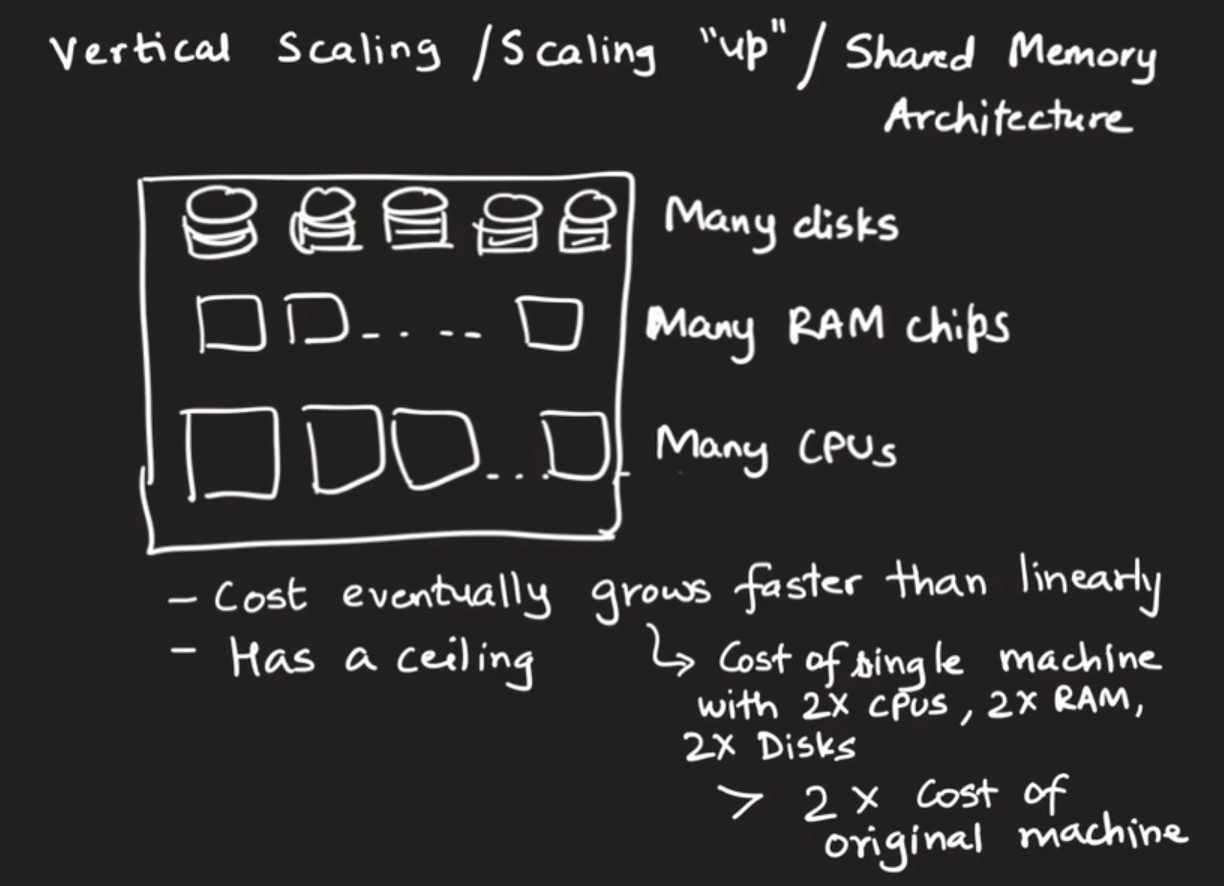 Vertical Scaling / Scaling "up" / Shared Memory
Architecture
Many disks
Many RAM chips
Many CPUs
- Cost eventually grows faster than linearly
- Has a ceiling
↳ Cost of single machine
with 2X CPUs, 2X RAM,
2X Disks
> 2 X Cost of
original machine